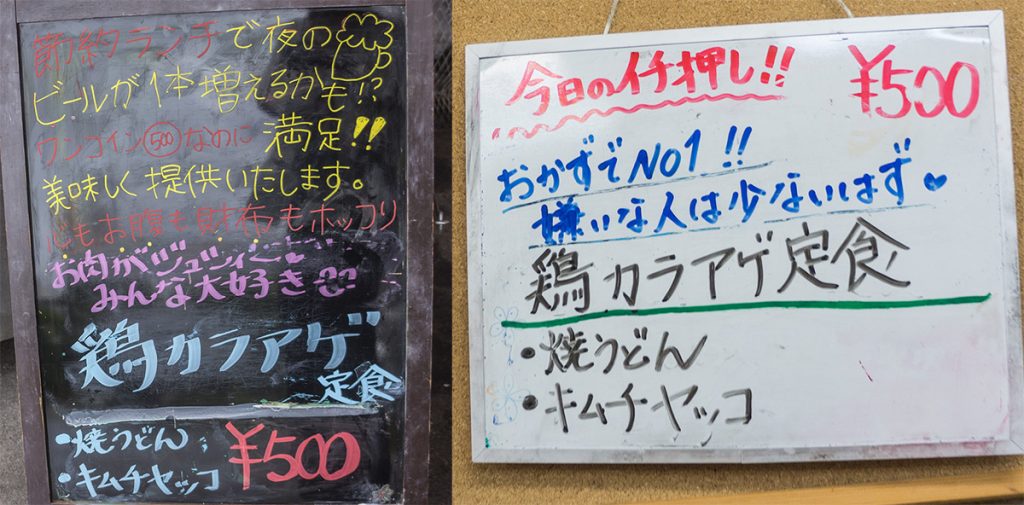 節約ランチで夜の
ビールが1本増えるかも!?
ワンコイン500なのに満足!!
美味しく提供いたします。
心もお腹も財布もホッコリ
お肉がジュシィー
みんな大好き
鶏カラアゲ
定食
・焼うどん
・キムチヤッコ
¥500
今日のイチ押し!!
¥500
おかずでNO1!!
嫌いな人は少ないはず
鶏カラアゲ定食
・焼うどん
・キムチヤッコ